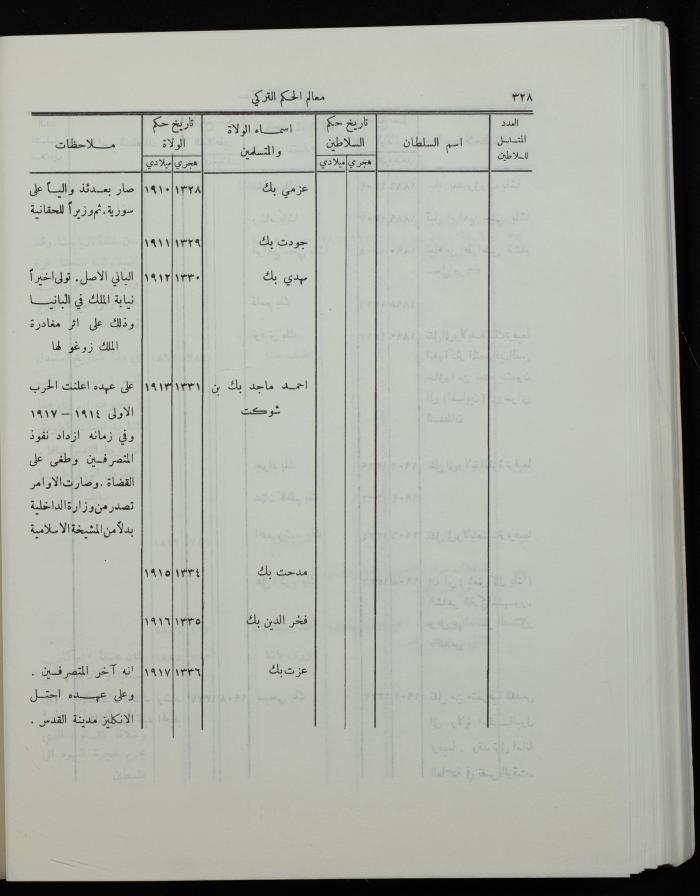 ٣٢٨
معالم الحكم التركي
العدد المتسلسل للسلاطين
اسم السلطان
تاريخ حكم السلاطين
هجري ميلادي
اسماء الولاة والمتسلمين
تاريخ حكم الولاة
هجري ميلادي
ملاحظات
عزمي بك ١٣٢٨ ١٩١٠ صار بعدئذ والياً على
سورية. ثم وزيراً للحقانية
جودت بك ١٣٢٩ ١٩١١
مهدي بك ١٣٣٠ ١٩١٢ الباني الاصل. تولى اخيراً
نيابة الملك في البانيا
وذلك على اثر مغادرة
الملك زوغو لها
احمد ماجد بك بن ١٣٣١ ١٩١٣ على عهده اعلنت الحرب
شوكت الاولى ١٩١٤ – ١٩١٧
وفي زمانه ازداد نفوذ
المتصرفين وطغى على
القضاة. وصارت الاوامر
تصدر من وزارة الداخلية
بدلاً من المشيخة الاسلامية
مدحت بك ١٣٣٤ ١٩١٥
فخر الدين بك ١٣٣٥ ١٩١٦
عزت بك ١٣٣٦ ١٩١٧ انه آخر المتصرفين.
وعلى عهده احتل
الانكليز مدينة القدس.